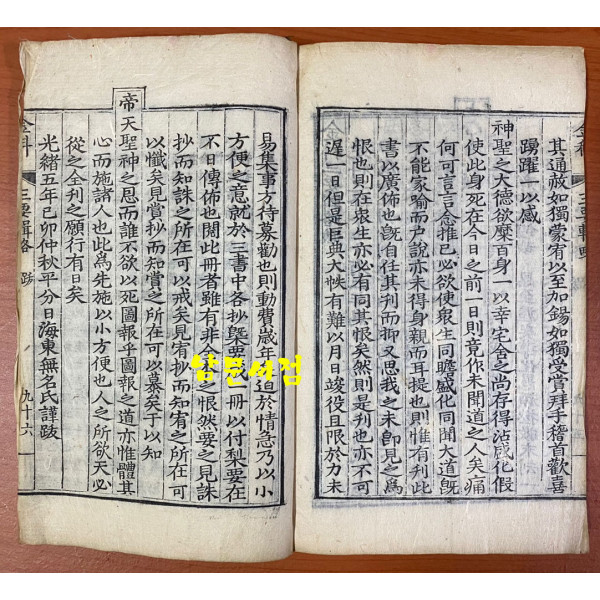 其通赦如獨蒙宥以至加錫如獨受賞拜手稽首歡喜
踢躍一以感
神聖之大德欲糜百身一以幸宅舍之尚存得沾感化假
使此身死在今日之前一日則竟作未聞道之人矣痛
何可言言念惟已必欲使衆生同瞻盛化同聞大道旣
不能家喻而戶說亦未得身親而耳提也則惟有刊此
書以廣佈也旣自任其刊而抑又思我之未卽見之爲
恨也則在衆生亦必有同其恨矣然則是刊也亦不可
遲一日但是巨典大帙有難以月日竣役且限於力未
易集事方待募勸也則動費歲年
道於情急乃以小
方便之意就於三書中各抄槩要
一冊以付梨要在
不日傳佈也閱此冊者雖有非全
恨然要之見誅
抄而知誅之所在可以戒矣見宥抄而知宥之所在可
以懺矣見賞抄而知賞之所在可以慕矣于以知
帝天聖神之恩而誰不欲以死圖報乎圖報之道亦惟體其
心而施諸人也此爲先施以小方便也人之所欲天必
從之全刊之願行有日矣
光緒五年己卯仲秋平分日海東無名氏謹跋
金科
三要輯略
跋
九十六
남문서점